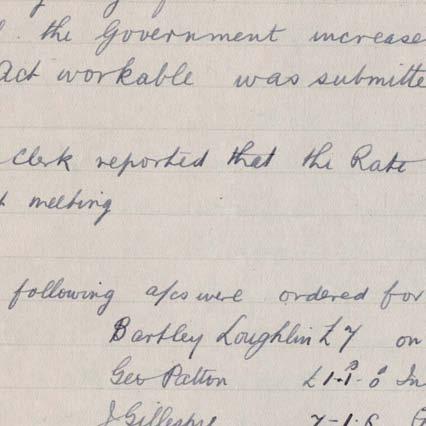 the Government increase
Act workable was submitte
clerk reported that the Rate
meeting
following a/cs were ordered for
Bartley Loughlin £7 on
Geo Patton £1-1-0 In
J Gillespie 7-1-6